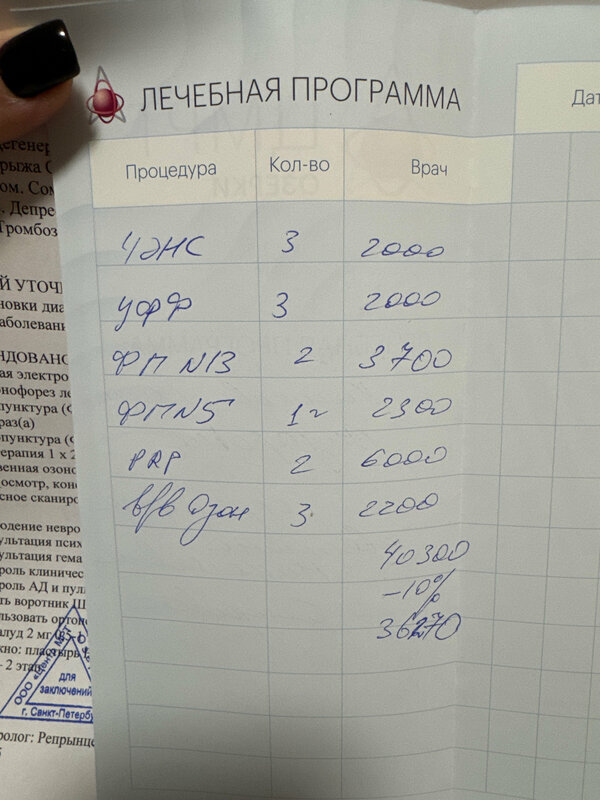 ЛЕЧЕБНАЯ ПРОГРАММА
Процедура Кол-во Врач
ЧЭНС 3 2000
УФФ 3 2000
ФП N13 2 3700
ФП N5 1 2300
PRP 2 6000
в/в Озон 3 2200
40300
-10%
36270
Дат
дегенер
рыжа
ом. Сом
. Депре
Тромбоз
Й УТОЧ
новки диа
аболевани
НДОВАНО
ая электро
онофорез ле
пунктура (Ф
раз(а)
пунктура (Ф
ерапия 1 x 2
венная озоно
осмотр, конс
сное сканиро
юдение невро
ультация псих
ультация гема
роль клиничес
роль АД и пул
ть воротник Ш
льзовать ортоп
2 мг
жно: пластырь
2 этап
ООО «Центр
для
заключений
г. Санкт-Петербу
ролог: Репрынце